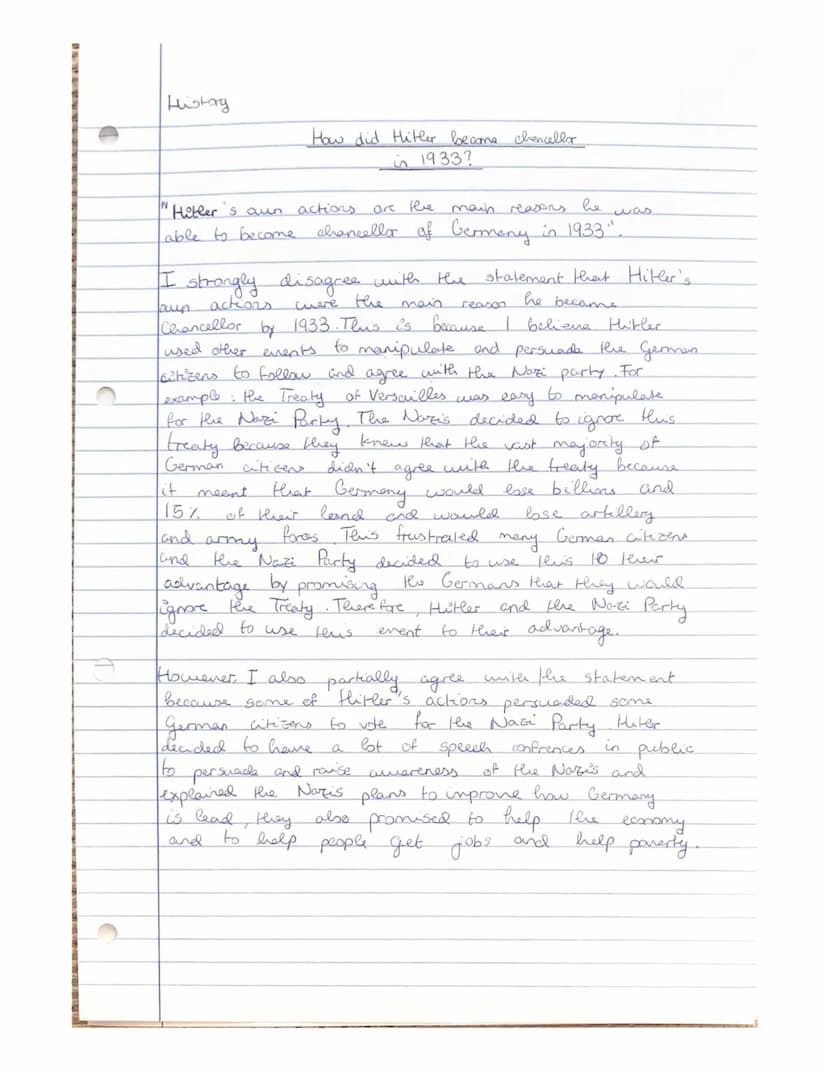 History
How did Hitler become chancellor
in 1933?
"Hitler's own actions are the main reasons he was
able to become chancellor of Germany in 1933".
I strongly disagree with the statement that Hitler's
own actions were the main reason he became
Chancellor by 1933. This is because I believe Hitler
used other events to manipulate and persuade the German
citizens to follow and agree with the Nazi party. For
example: the Treaty of Versailles was easy to manipulate
for the Nazi Party. The Nazis decided to ignore this
treaty because they knew that the vast majority of
German citizens didn't agree with the treaty because
it meant that Germany would lose billions and
15% of their land and would lose artillery
and army forces. This frustrated many German citizens
and the Nazi Party decided to use this to their
advantage by promising the Germans that they would
ignore the Treaty. Therefore, Hitler and the Nazi Party
decided to use this event to their advantage.
However, I also partially agree with the statement
because some of Hitler's actions persuaded some
German citizens to vote for the Nazi Party Hitler
decided to have a lot of speech confrences in public
to persuade and raise awareness of the Nazis and
explained the Nazis plans to improve how Germany
is lead, they also promised to help the economy
and to help people get jobs and help poverty.